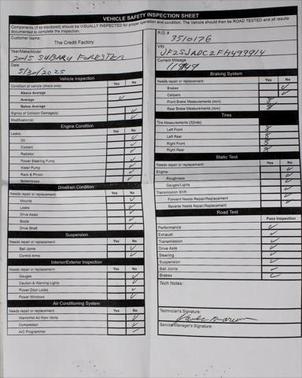 VEHICLE SAFETY INSPECTION SHEET
Components (if so equipped) should be VISUALLY INSPECTED for proper operation and condition. The vehicle should then be ROAD TESTED and all results documented to complete the inspection.
Customer Name:
The Credit Factory
Year/Make/Model:
2015 SUBARU FORESTER
Date:
5/30/2025
Vehicle Inspection
Condition of vehicle (check one):
Above Average
Average
Below Average
Yes No
Signs of Collision Damage(s)
Modification(s)
Engine Condition
Needs repair or replacement: Yes No
Leaks
Oil
Coolant
Radiator
Power Steering Pump
Water Pump
Rack & Pinion
Drivetrain Condition
Needs repair or replacement: Yes No
Mounts
Leaks
Drive Axles
Boots
Drive Shaft
Suspension
Needs repair or replacement: Yes No
Ball Joints
Control Arms
Interior/Exterior Inspection
Needs repair or replacement: Yes No
Gauges
Caution & Warning Lights
Power Door Locks
Power Windows
Air Conditioning System
Needs repair or replacement: Yes No
Compressor
A/C Programmer
R.O. #
3510176
VIN:
Current Mileage
Braking System
Needs repair or replacement: Yes No
Brakes
Calipers
Front Brake Measurements (mm)
Rear Brake Measurements (mm)
Tires
Tire Measurements (32nds)
Left Front
Left Rear
Right Front
Right Rear
Static Test
Needs repair or replacement: Yes No
Engine
Roughness
Gauges/Lights
Transmission Shift
Forward Needs Repair/Replacement
Reverse Needs Repair/Replacement
Road Test
Pass Inspection
Performance
Exhaust
Transmission
Drive Axle
Steering
Suspension
Ball Joints
Brakes
Tech Notes:
Technician's Signature:
Service Manager's Signature: